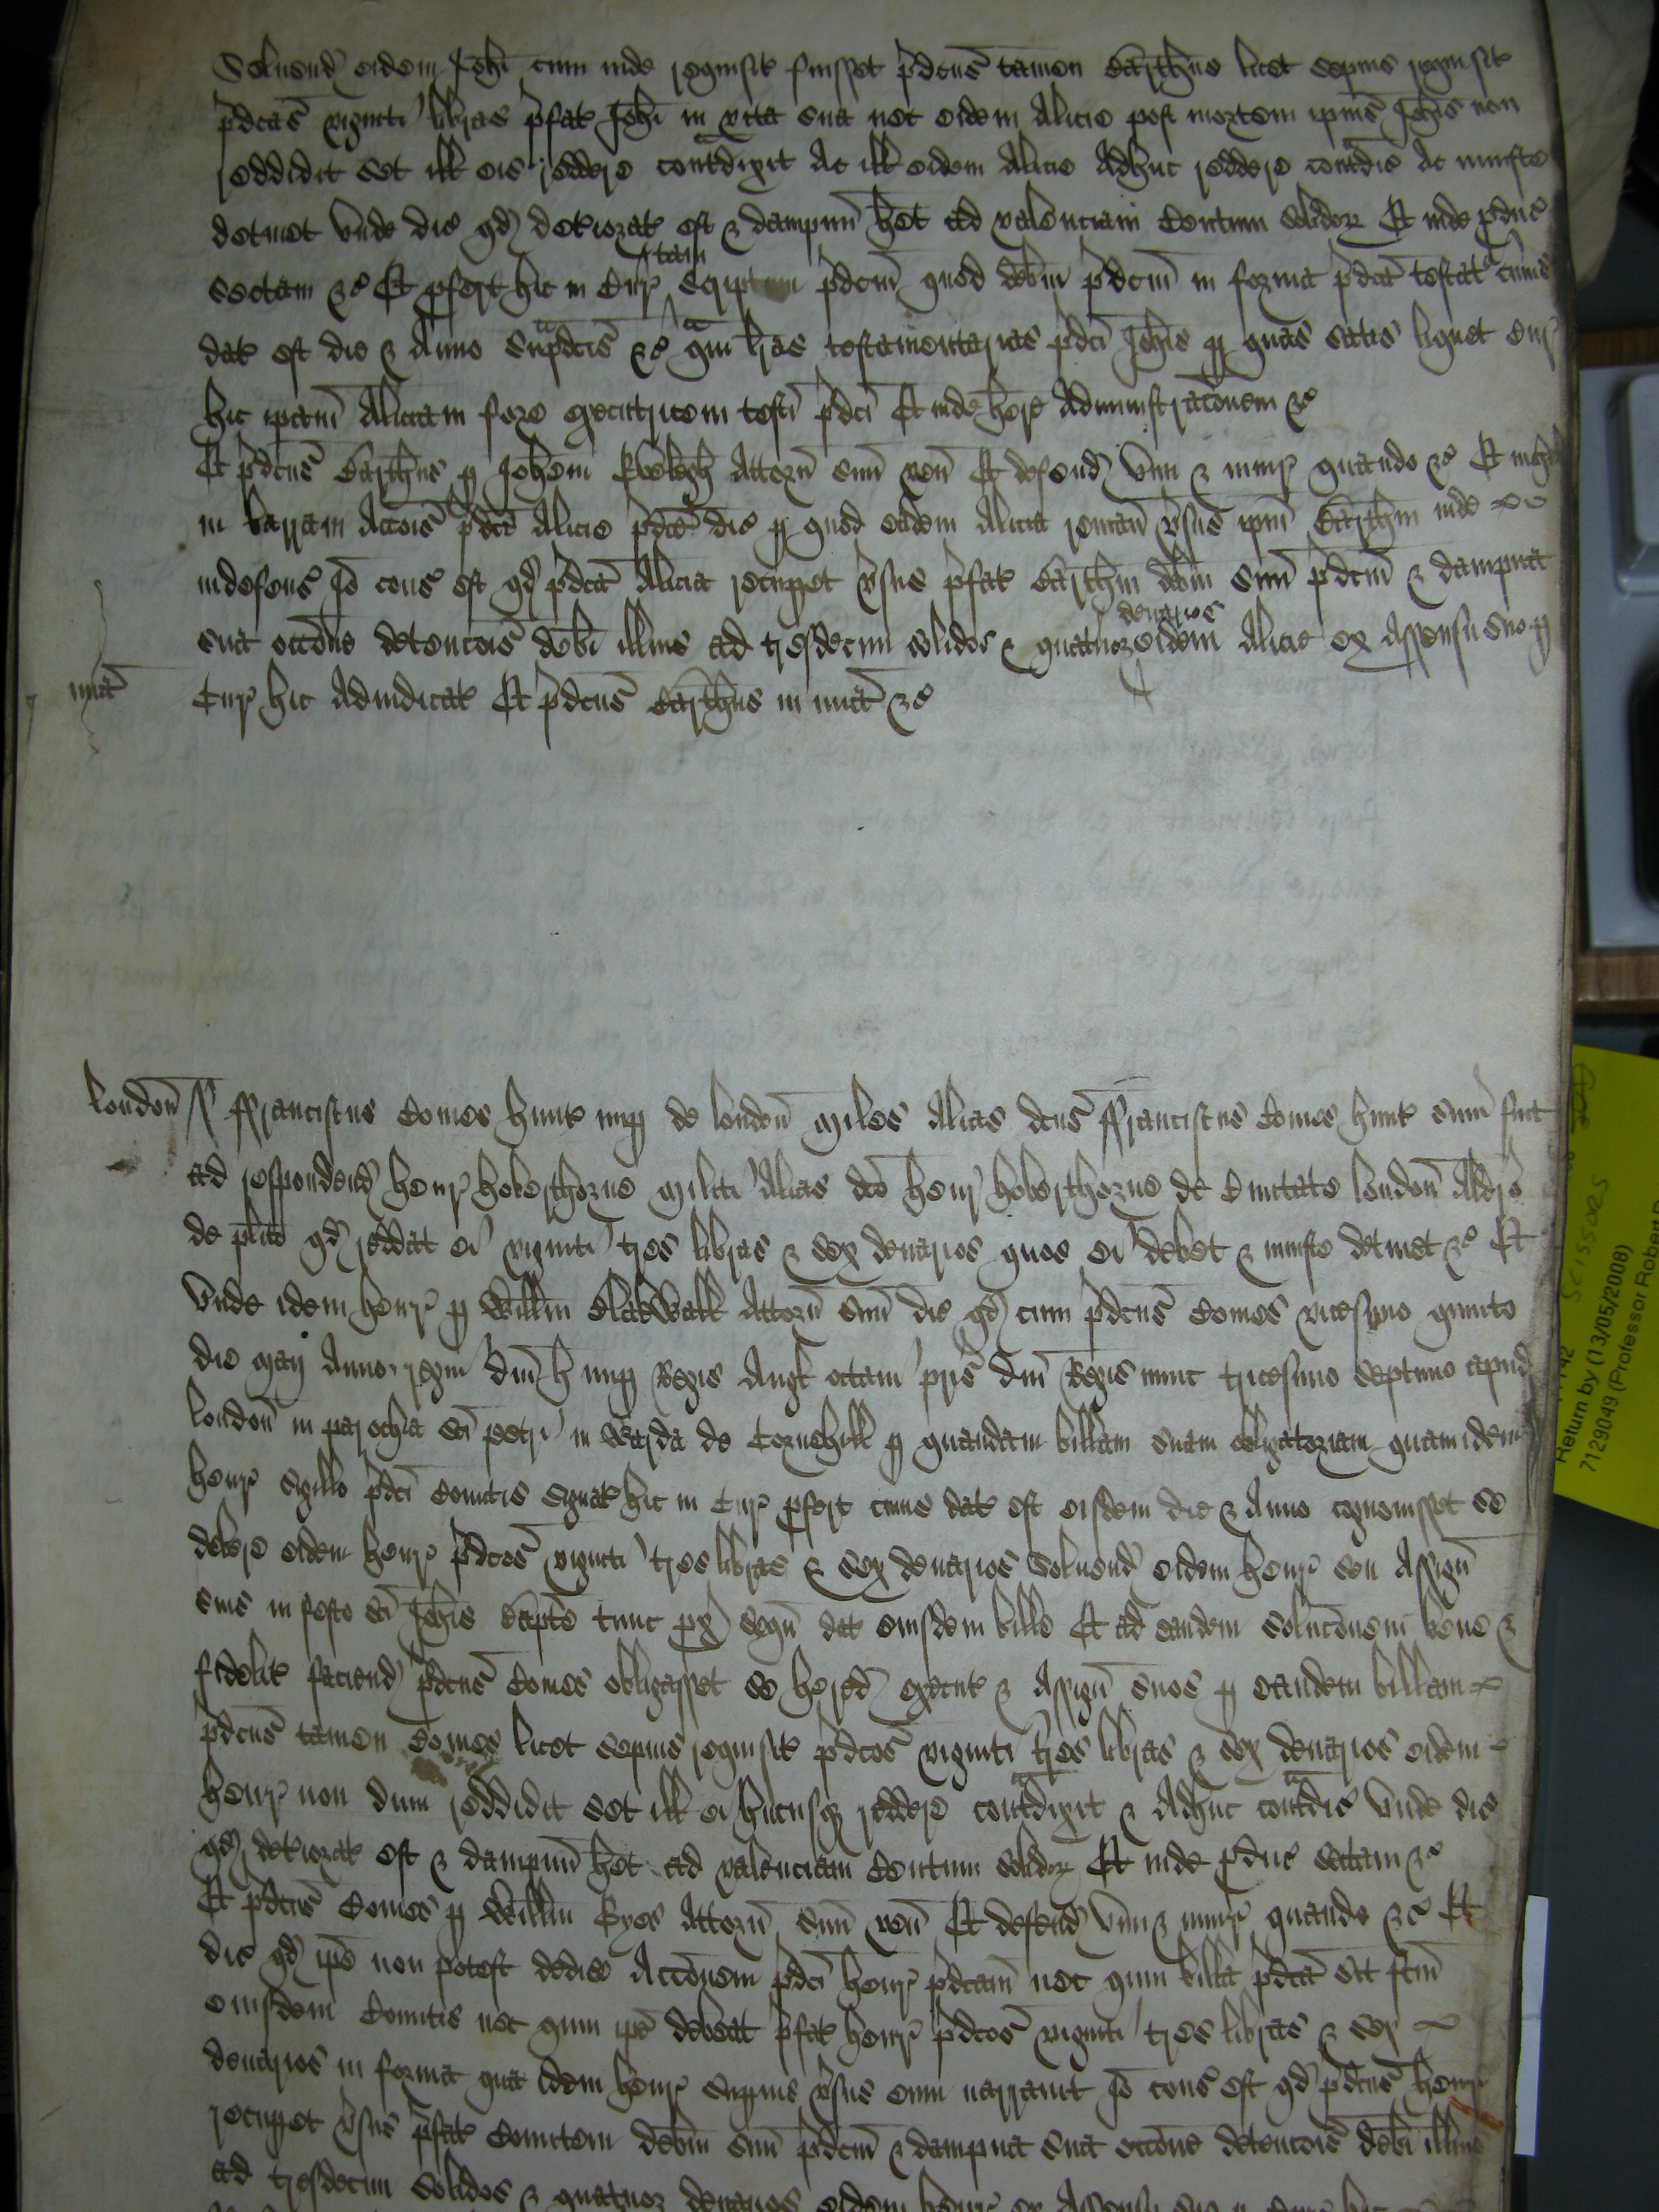 Soluend eidem Johi cum inde requisit fuisset p̄dcus tamen Barthus licet sepius requisit
p̄dcas viginti libras p̄fat Johi in vita sua nec eidem Alicie post mortem ipius Johis non
reddidit set ill eis reddere contradixit Ac ill eidem Alicie adhuc reddere contradic Ac iniuste
detinet Unde dic qd deteriorat est & dampnu het ad valenciam Centum solidor Et inde pduc
sectam &c Et pfert hic in Cur tam scriptum p̄dcm quod debm p̄dcm in forma p̄dca testat cuius
dat est die & Anno supradcis &c qam lras testamentarias p̄dci Johis p quas satis liquet Cur
hic ipam Aliciam fore executricem testi p̄dci Et inde here Administracoem &c
Et p̄dcus Barthus p Johem Attorn suu ven Et defend vim & iniur quando &c Et nichil
in barram Accois p̄dce Alicie p̄dce dic p quod eadem Alicia reman vsus ipm Barthm inde
indefens Io cons est qd p̄dca Alicia recupet vsus p̄fat Barthm debm suu p̄dcm & dampna
sua occone detencois debi illius ad tresdecim solidos & quatuor denarios eidem Alicie ex Assensu suo p
mia Cur hic Adiudicat Et p̄dcus Barthus in mia &c
london ss ffranciscus Comes hunt nup de london miles Alias dcus ffranciscus Comes hunt sum fuit
ad respondend henr hoberthorne militi Alias dco henr hoberthorne de Ciuitate london Aldro
de plito qd reddat ei viginti tres libras & sex denarios quos ei debet & iniuste detinet &c Et
Unde idem henr p Willm Blakwall Attorn suu dic qd cum p̄dcus Comes vicesimo quinto
die maij Anno regni dni h nup Regis Angl octaui pris dni Regis nunc tricesimo septimo apud
london in parochia sci petri in Warda de Cornehill p quandam billam suam obligatoriam quam idem
henr sigillo p̄dci Comitis signat hic in Cur pfert cuius dat est eisdem die & Anno cognouisset se
debere eidem henr p̄dcas viginti tres libras & sex denarios Soluend eidem henr seu Assign
suis in festo sci Johis Bapte tunc px sequ dat eiusdem bille Et ad eandem solucoem bene &
fidelit faciend p̄dcus Comes obligasset se hered execut & Assign suos p eandem billam
p̄dcus tamen Comes licet sepius requisit p̄dcas viginti tres libras & sex denarios eidem
henr non dum reddidit set ill ei hucusq reddere contradixit & Adhuc contradic Unde dic
qd deteriorat est & dampnu het ad valenciam Centum solidor Et inde pduc sectam &c
Et p̄dcus Comes p Willm Attorn suu ven Et defend vim & iniur quando &c Et
dic qd ipe non potest dedicere Accoem p̄dci henr p̄dcam nec quin billa p̄dca sit fcm
eiusdem Comitis nec quin ipe debeat p̄fat henr p̄dcas viginti tres libras & sex
denarios in forma qua idem henr supius vsus eum narrauit Io cons est qd p̄dcus henr
recupet vsus p̄fat Comitem debm suu p̄dcm & dampna sua occone detencois debi illius
ad tresdecim solidos & quatuor denarios eidem henr ex Assensu suo p Cur hic
Return by (13/05/2008)
7129049 (Professor Robert
SCISSORS